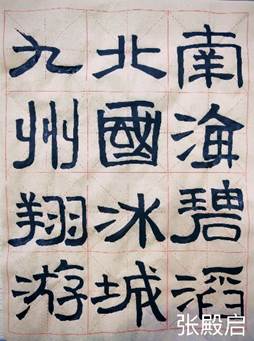 南海碧滔
北國冰城
九州翔游
张殿启